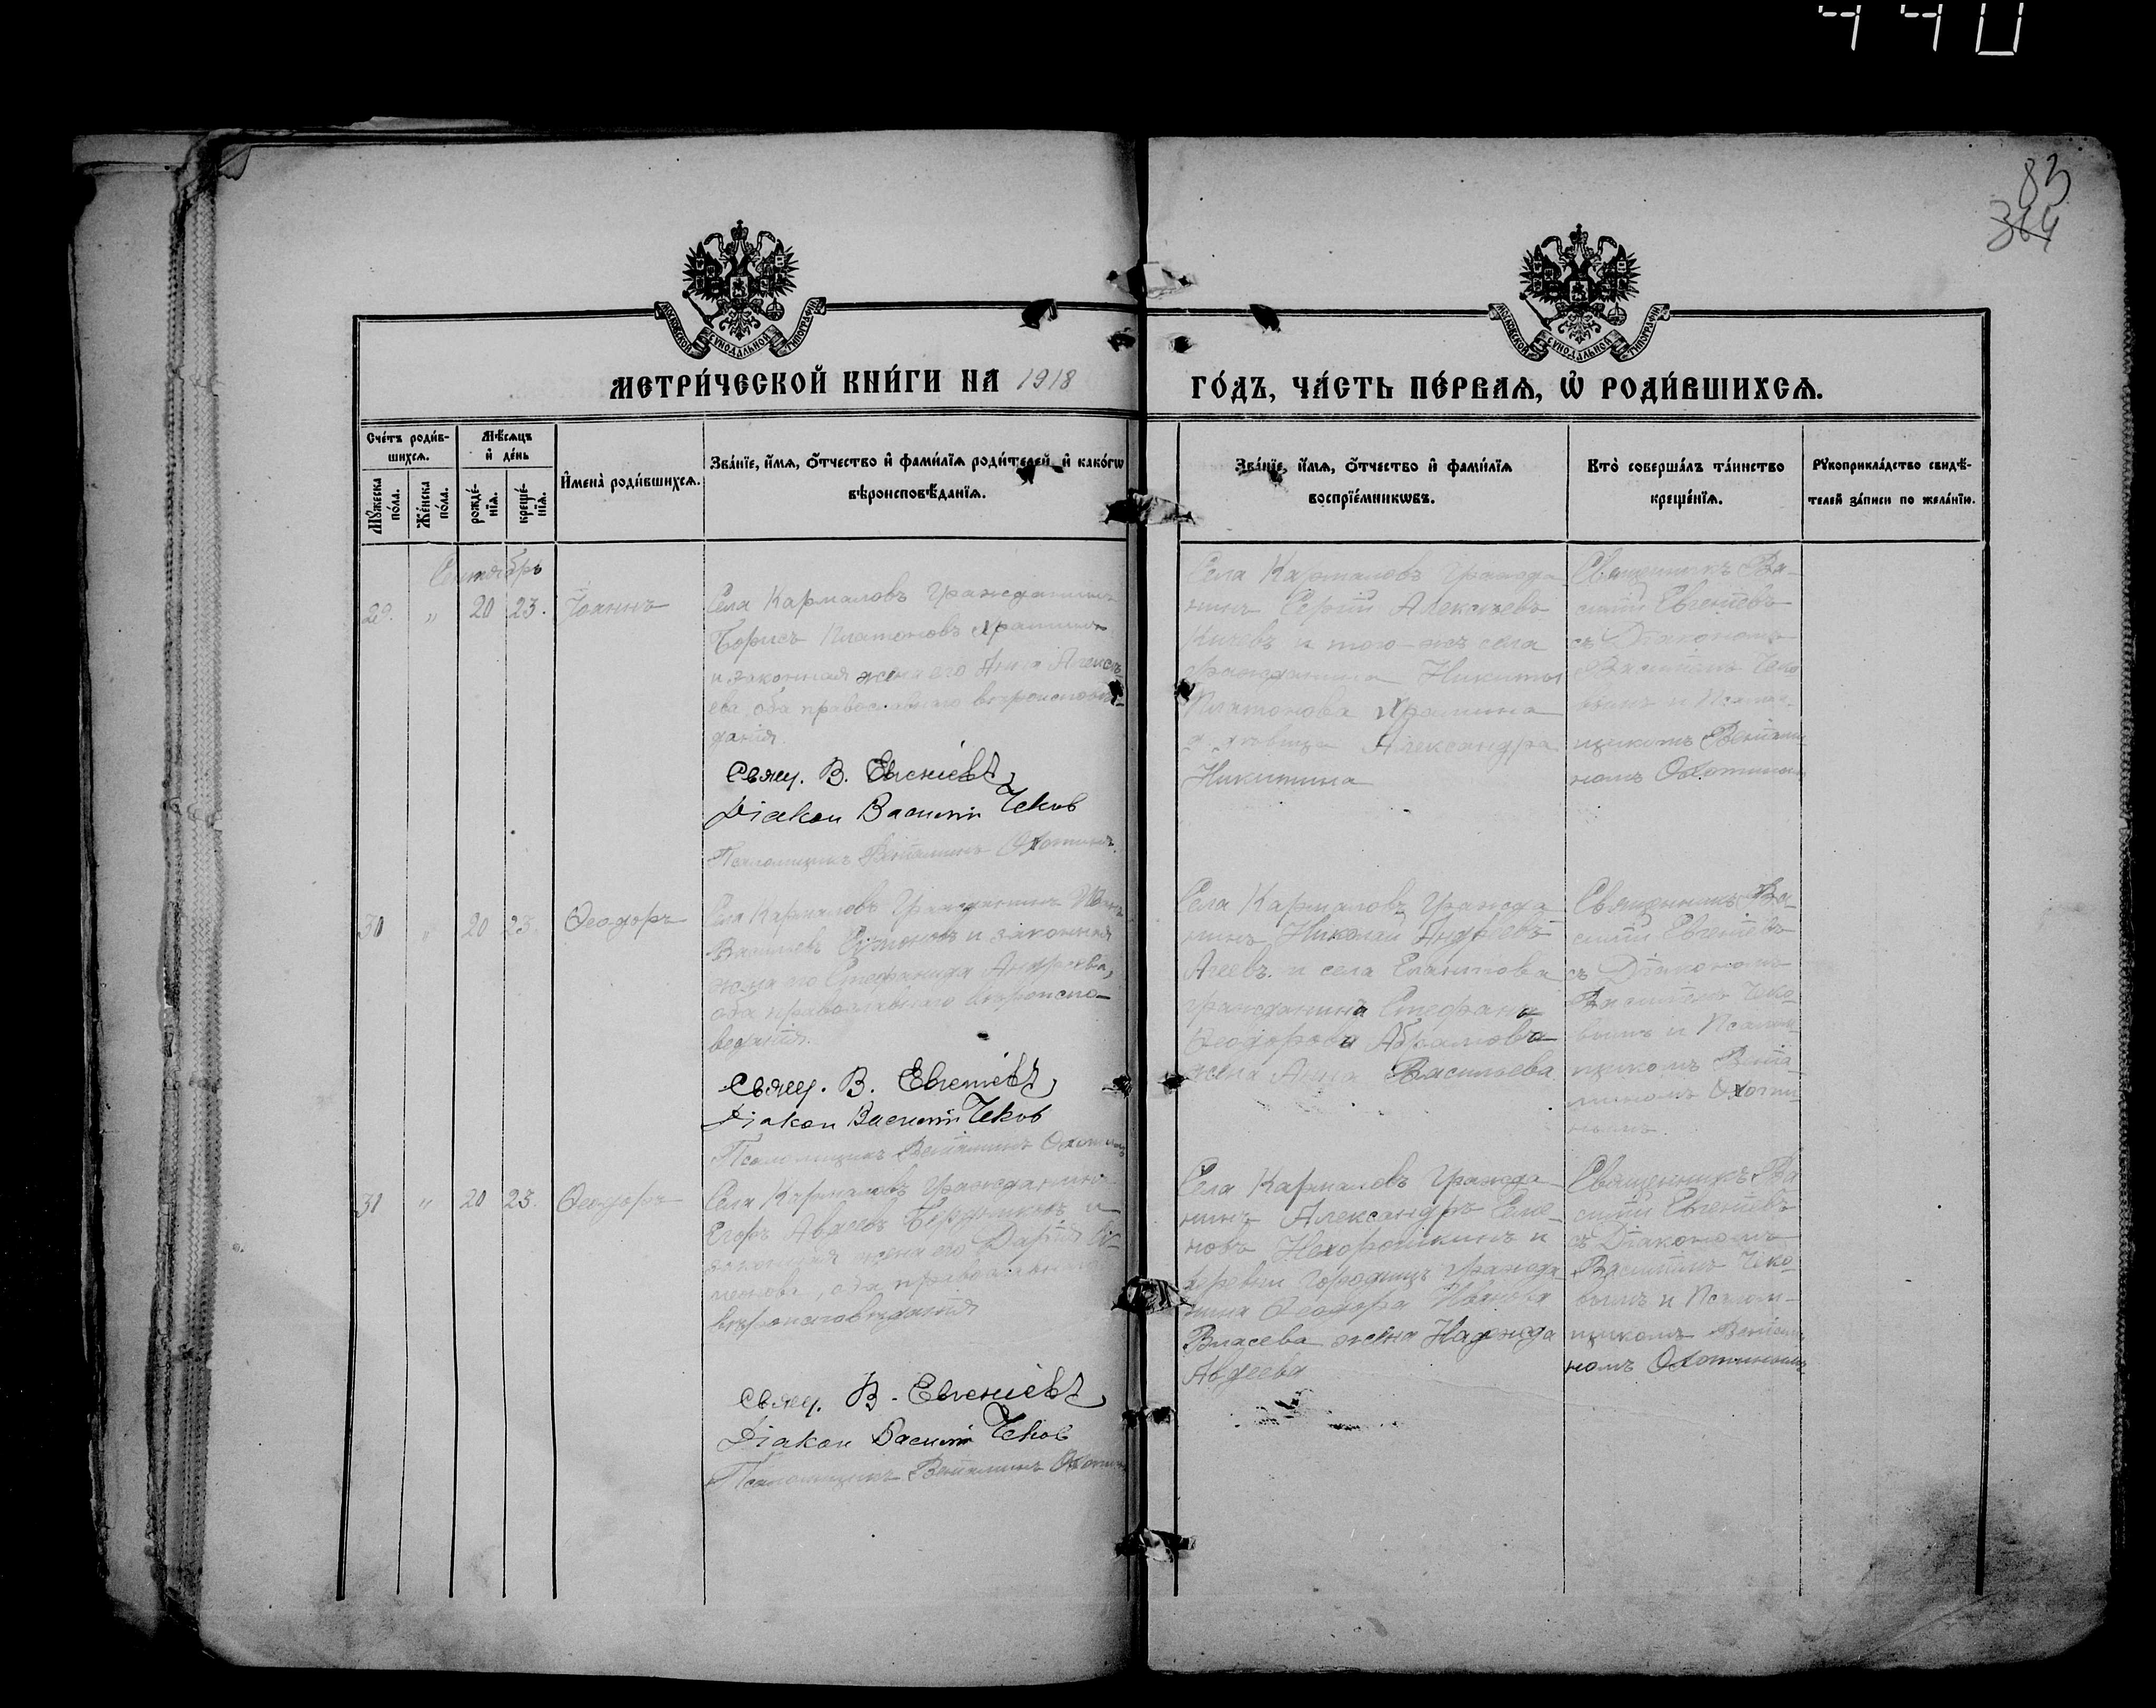 440
83
364
МОСКОВСКОЙ СѴНОДАЛЬНОЙ ТИПОГРАФІИ
МОСКОВСКОЙ СѴНОДАЛЬНОЙ ТИПОГРАФІИ
МЕТРИ́ЧЕСКОЙ КНИ́ГИ НА 1918
ГО́ДЪ, ЧА́СТЬ ПЕ́РВАѦ, Ѽ РОДИ́ВШИХСѦ.
Сче́тъ роди́в-
шихсѧ.
Мѣ́сѧцъ
и҆ де́нь
Мꙋ́жеска по́ла.
Же́нска по́ла.
рожде́-нїѧ.
креще́-нїѧ.
И҆мена̀ роди́вшихсѧ.
Зва́нїе, и҆́мѧ, ѻ҆́тчество и҆ фами́лїѧ роди́телей и҆ како́гѡ
вѣроисповѣ́данїѧ.
Зва́нїе, и҆́мѧ, ѻ҆́тчество и҆ фами́лїѧ
воспрїе́мникѡвъ.
Кто̀ соверша́лъ та́инство
креще́нїѧ.
Рꙋкоприкла́дство свидѣ́-
телей за́писи по жела́нїю.
Сентябрь
29. „ 20 23. Іоаннъ
Села Кармаловъ Гражданинъ
Борисъ Платоновъ Храминъ
и законная жена его Анна Алексѣ-
ева, оба православнаго вѣроисповѣ-
данія.
Свящ. В. Евгеніевъ
Діакон Василій Чеков
Псаломщикъ Веніаминъ Охотинъ.
Села Кармаловъ Гражда-
нинъ Сергій Алексѣевъ
и того-же села
гражданина Никиты
Платонова Храмина
Александра
Никитина
Священникъ Ва-
силій Евгеніевъ
съ Діакономъ
Василіемъ Чеко-
вымъ и Псалом-
щикомъ Веніами-
номъ Охотинымъ
30 „ 20 23. Ѳеодоръ
Села Кармаловъ Гражданинъ Иванъ
Васильевъ и законная
жена его Епифанида Андреева,
оба православнаго вѣроиспо-
веданія.
Свящ. В. Евгеніевъ
Діакон Василій Чеков
Псаломщикъ Веніаминъ Охотинъ
Села Кармаловъ Гражда-
нинъ Николай Андреевъ
Агеевъ и села
гражданина Стефана
Ѳеодорова Абрамова
жена Анна Васильева
Священникъ Ва-
силій Евгеніевъ
съ Діакономъ
Василіемъ Чеко-
вымъ и Псалом-
щикомъ Веніа-
миномъ Охоти-
нымъ.
31 „ 20 23. Ѳеодоръ
Села Кармаловъ Гражданинъ
Егоръ Авдеевъ и
законная жена его Дарія Си-
меонова, оба православнаго
вѣроисповѣданія
Свящ. В. Евгеніевъ
Діакон Василій Чеков
Псаломщикъ Веніаминъ Охотинъ
Села Кармаловъ Гражда-
нинъ Александръ Симе-
новъ Нехорошкинъ и
деревни Городищъ гражда-
нина Ѳеодора Иванова
Власева жена Надежда
Авдеева
Священникъ Ва-
силій Евгеніевъ
съ Діакономъ
Василіемъ Чеко-
вымъ и Псалом-
щикомъ Веніами-
номъ Охотинымъ